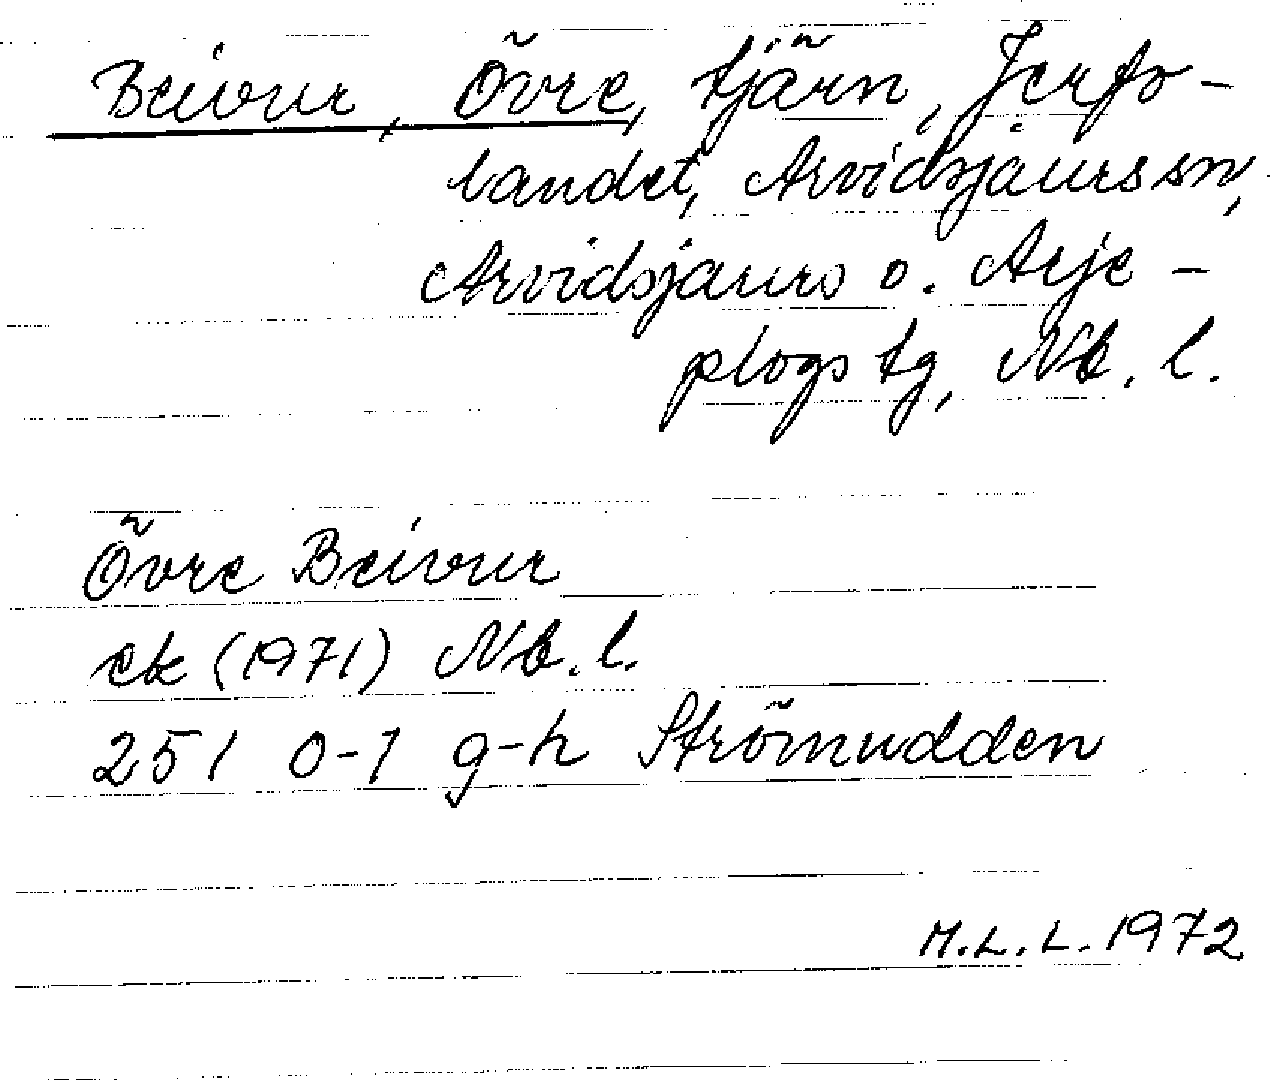 Beivur, Övre, tjärn, Jerfo-
landet, Arvidsjaurs sn,
Arvidsjaurs o. Arje-
plogs tg, Nb. l.
Övre Beivur
ek (1971) Nb. l.
251 0-1 g-h Strömudden
M.L.L. 1972